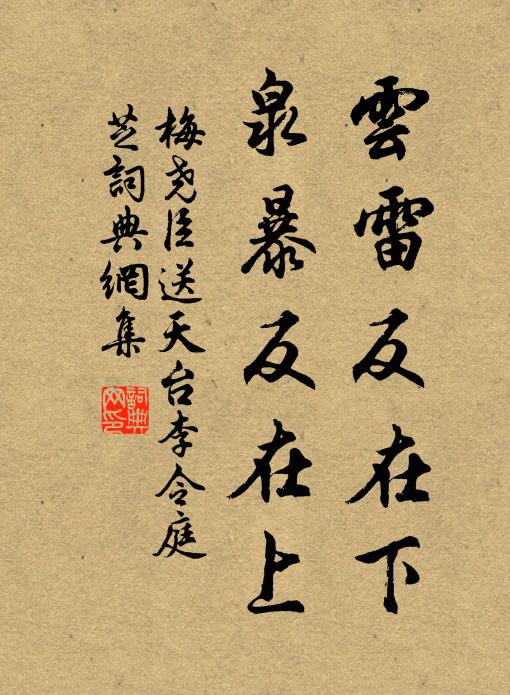 雲雷反在下
泉暴反在上
梅尭臣送天台李令庭
芝詞典網集
詞典网印